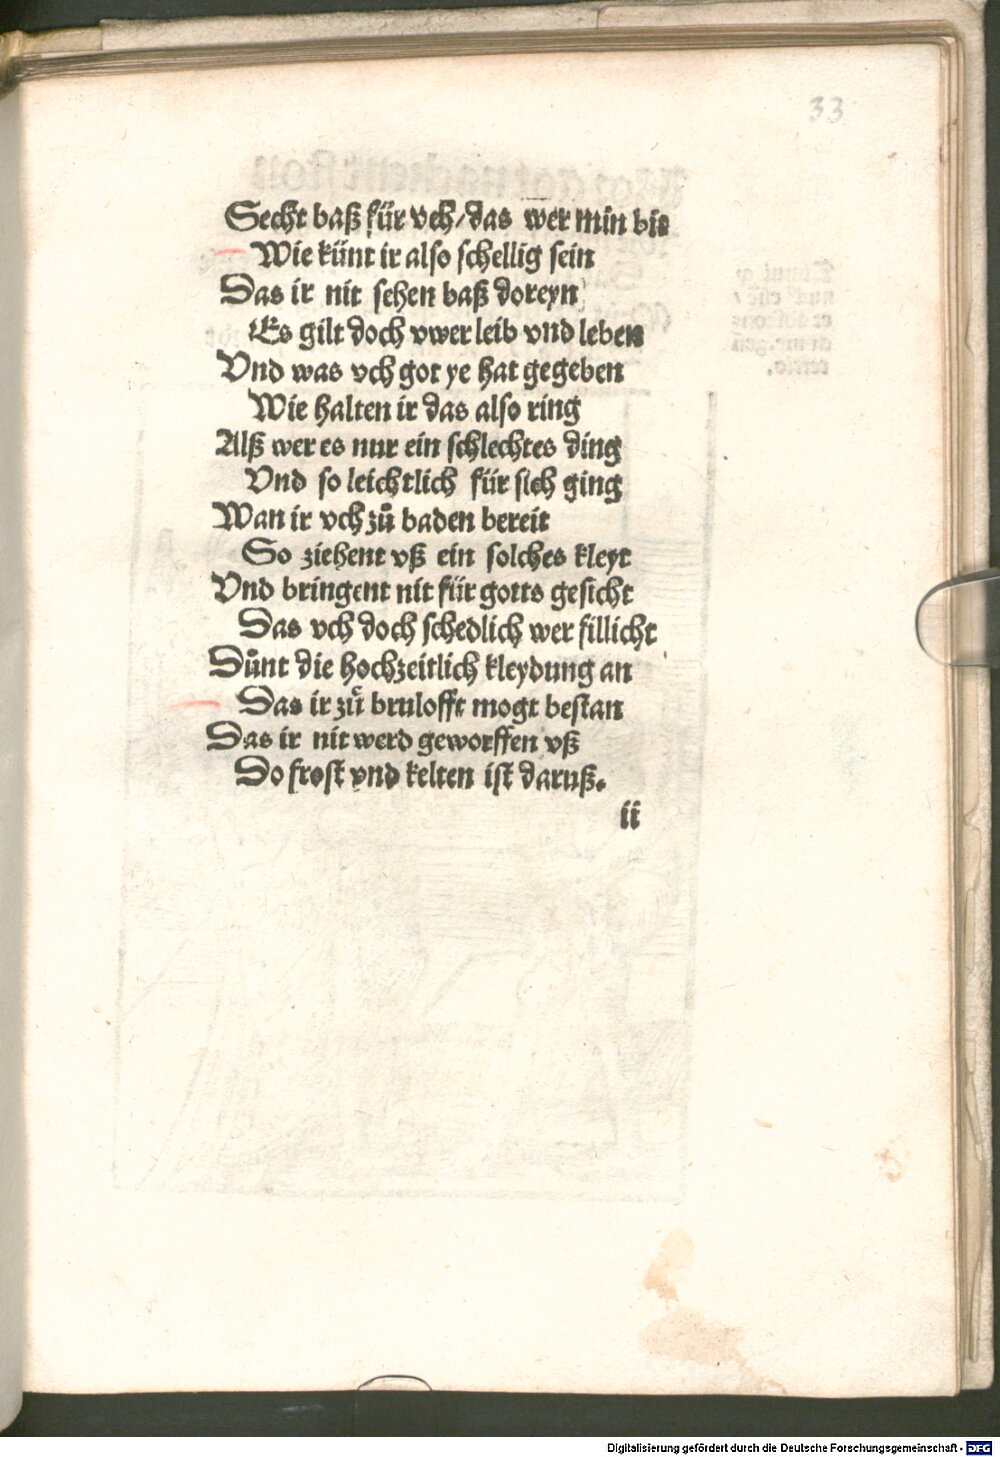 33
Secht baß für vch/das wer min bit
Wie künt ir also schellig sein
Das ir nit sehen baß doreyn
Es gilt doch vwer leib vnd leben
Vnd was vch got ye hat gegeben
Wie halten ir das also ring
Alß wer es nur ein schlechtes ding
Vnd so leichtlich für sich ging
Wan ir vch zů baden bereit
So ziehent vß ein solches kleyt
Vnd bringent nit für gotts gesicht
Das vch doch schedlich wer fillicht
Důnt die hochzeitlich kleydung an
Das ir zů brulofft mogt bestan
Das ir nit werd geworffen vß
Do frost vnd kelten ist daruß.
ii
Digitalisierung gefördert durch die Deutsche Forschungsgemeinschaft - DFG